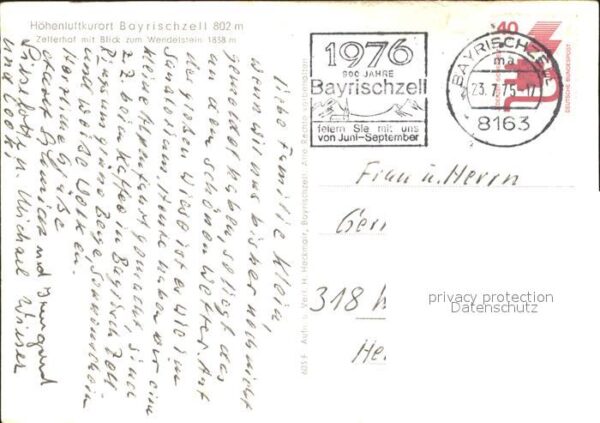 Höhenluftkurort Bayrischzell 802 m
Zellerhof mit Blick zum Wendelstein 1838 m
Liebe Familie Klein,
wenn wir uns bisher noch nicht
gemeldet haben, so liegt das
an dem schönen Wetter. Auf
der großen Wiese ist es wie im
Sanatorium. Heute haben wir eine
kleine Alpenfahrt gemacht, sind
z.Z. beim Kaffee in Bayrischzell
Ringsum grüne Berge, Sonnenschein
und weiße Wolken.
Herzliche Grüße
und Irmgard
u. Michael Wieser
1976
900 JAHRE
Bayrischzell
feiern Sie mit uns
von Juni-September
BAYRISCHZELL
23.7.75-17
8163
40
DEUTSCHE BUNDESPOST
Frau u. Herrn
318
privacy protection
Datenschutz